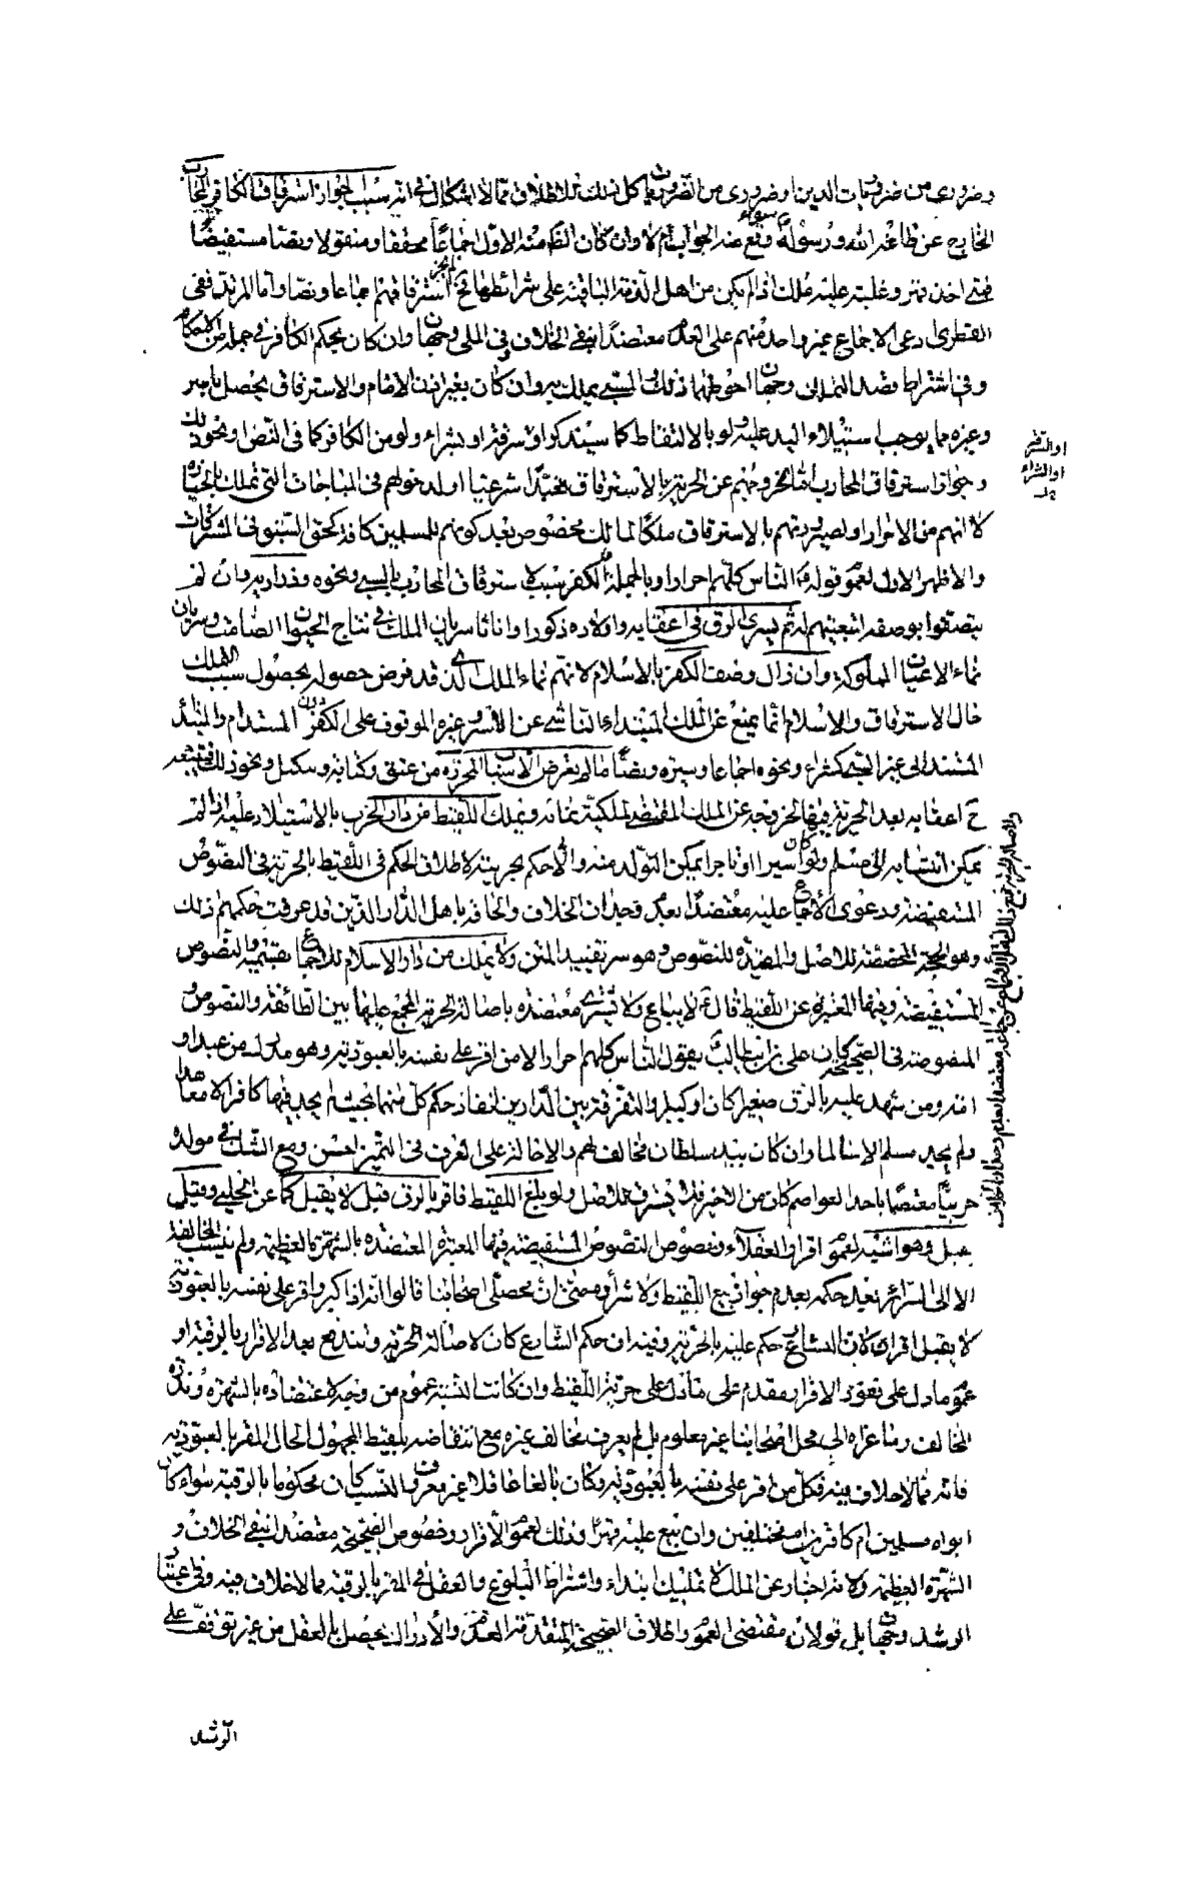 وضروري من ضروريات الدين او ضروري من الضروريات كل ذلك للاطلاق مما لا اشكال في انه سبب لجواز استرقاق الكافر المحارب
الخارج عن طاعة الله ورسوله سواء وقع عنه الجواب ام لا وان كان الظ منه الاول اجماعا محققا ومنقولا ونصا مستفيضا
فمتى اخذ قهر وغلبة عليه ملك اذا لم يكن من اهل الذمة الباقية على شرائطها لم يجز استرقاقهم اجماعا ونصا واما المرتد ففي
الفطري ادعى الاجماع غير واحد منهم على العدم معتضدا بنفي الخلاف وفي الملي وجهان وان كان بحكم الكافر في جملة من الاحكام
وفي اشتراط قصد التملك وجهان احوطهما ذلك والسبي يملك به وان كان بغير اذن الامام والاسترقاق يحصل بالاسر
وغيره مما يوجب استيلاء اليد عليه ولو بالالتقاط كما سيذكر او سرقة او بشراء ولو من الكافر كما في النص او نحو ذلك
وجواز استرقاق المحارب اما لخروجهم عن الحرية بالاسترقاق تعبدا شرعيا او لدخولهم في المباحات التي تملك بالحيازة
لا انهم من الاحرار او لصيرورتهم بالاسترقاق ملكا لمالك مخصوص بعد كونهم للمسلمين كافة كحق السبق في المشتركات
والاظهر الاول لعموم قوله ع الناس كلهم احرار وبالجملة الكفر سبب لاسترقاق المحارب بالسبي ونحوه وذراريه وان لم
يتصفوا بوصفه لتبعيتهم له ثم يسري الرق في اعقابه واولاده ذكورا واناثا سريان الملك في نتاج الحيوان الصامت وسريان
نماء الاعيان المملوكة وان زال وصف الكفر بالاسلام لانهم نماء الملك الذي قد فرض حصوله بحصول سبب الملك
حال الاسترقاق والاسلام انما يمنع عن الملك المبتداء الناشي عن الاسر وغيره الموقوف على الكفر دون المستدام والمبتدأ
المستند الى غير السبي كشراء ونحوه اجماعا وسيرة ونصا ما لم يعرض الاسباب المحررة من عتق وكتابة وتنكيل ونحو ذلك فتتبعه
ح اعقابه بعد الحرية فيها لخروجه عن الملك المقتضي لملكية نمائه ويملك اللقيط من دار الحرب بالاستيلاء عليه اذا لم
يمكن انتسابه الى مسلم ولو كان اسيرا او تاجرا يمكن التولد منه والا حكم بحريته لاطلاق الحكم في اللقيط بالحرية في النصوص
المستفيضة ودعوى الاجماع عليه معتضدا بعدم وجدان الخلاف والحاقه باهل الدار الذين قد عرفت حكمهم ذلك
وهو الحجة المخصصة للاصل والمقيدة للنصوص وهو سر تقييد المتن ولا يملك من دار الاسلام للاجماع بقسميه والنصوص
المستفيضة ومنها المعتبرة عن اللقيط قال ع لا يباع ولا يشترى معتضدة باصالة الحرية المجمع عليها بين الطائفة والنصوص
المنصوصة في الصحيح كان علي بن ابيطالب يقول الناس كلهم احرار الا من اقر على نفسه بالعبودية وهو مدرك من عبد او
امة ومن شهد عليه بالرق صغيرا كان او كبيرا والتفرقة بين الدارين لنفاذ حكم كل منهما بحيث لم يجد فيها كافرا الا معاهدا
ولم يجد مسلما الا سالما وان كان بينه سلطان مخالف لهم والاحالة على العرف في التميز احسن ومع الشك في مولده
حربيا معتصما باحد العواصم كان من الاخير فلا يسترق للاصل ولو بلغ اللقيط فاقر بالرق قيل لا يقبل كما عن الحلي وقيل
يقبل وهو اشبه لعموم اقرار العقلاء وخصوص النصوص المستفيضة فيها المعتبرة المعتضدة بالشهرة العظيمة ولم ينسب الخالفة
الا الى السرائر بعد حكمه بعدم جواز بيع اللقيط ولا شرائه محتجا ان محصلي اصحابنا قالوا انه اذا كبر واقر على نفسه بالعبودية
لا يقبل اقراره لان الشارع حكم عليه بالحرية وفيه ان حكم الشارع كان لاصالة الحرية وتندفع بعد الاقرار بالرقية او
عموم ما دل على نفوذ الاقرار مقدم على ما دل على حرية اللقيط وان كانت النسبة عموم من وجه لاعتضاده بالشهرة وندرة
المخالف وما عزاه الى محصلي اصحابنا غير معلوم بل لم يعرف مخالف غيره مع انتقاضه بلقيط المجهول الحال المقر بالعبودية
فانه مما لا خلاف فيه فكل من اقر على نفسه بالعبودية وكان بالغا عاقلا غير معروف النسب كان محكوما بالرقية سواء كان
ابواه مسلمين ام كافرين ام مختلفين وان بيع عليه قهرا وذلك لعموم الاقرار وخصوص الصحيحة معتضدا بنفي الخلاف و
الشهرة العظيمة ولانه اخبار عن الملك لا تمليك ابتداء واشتراط البلوغ والعقل في المقر بالرقية مما لا خلاف فيه وفي اعتبار
الرشد وجهان بل قولان مقتضى العموم واطلاق الصحيحة المتقدمة العدم والادراك يحصل بالعقل من غير توقف على
او القهر
او الشراء
الرشد